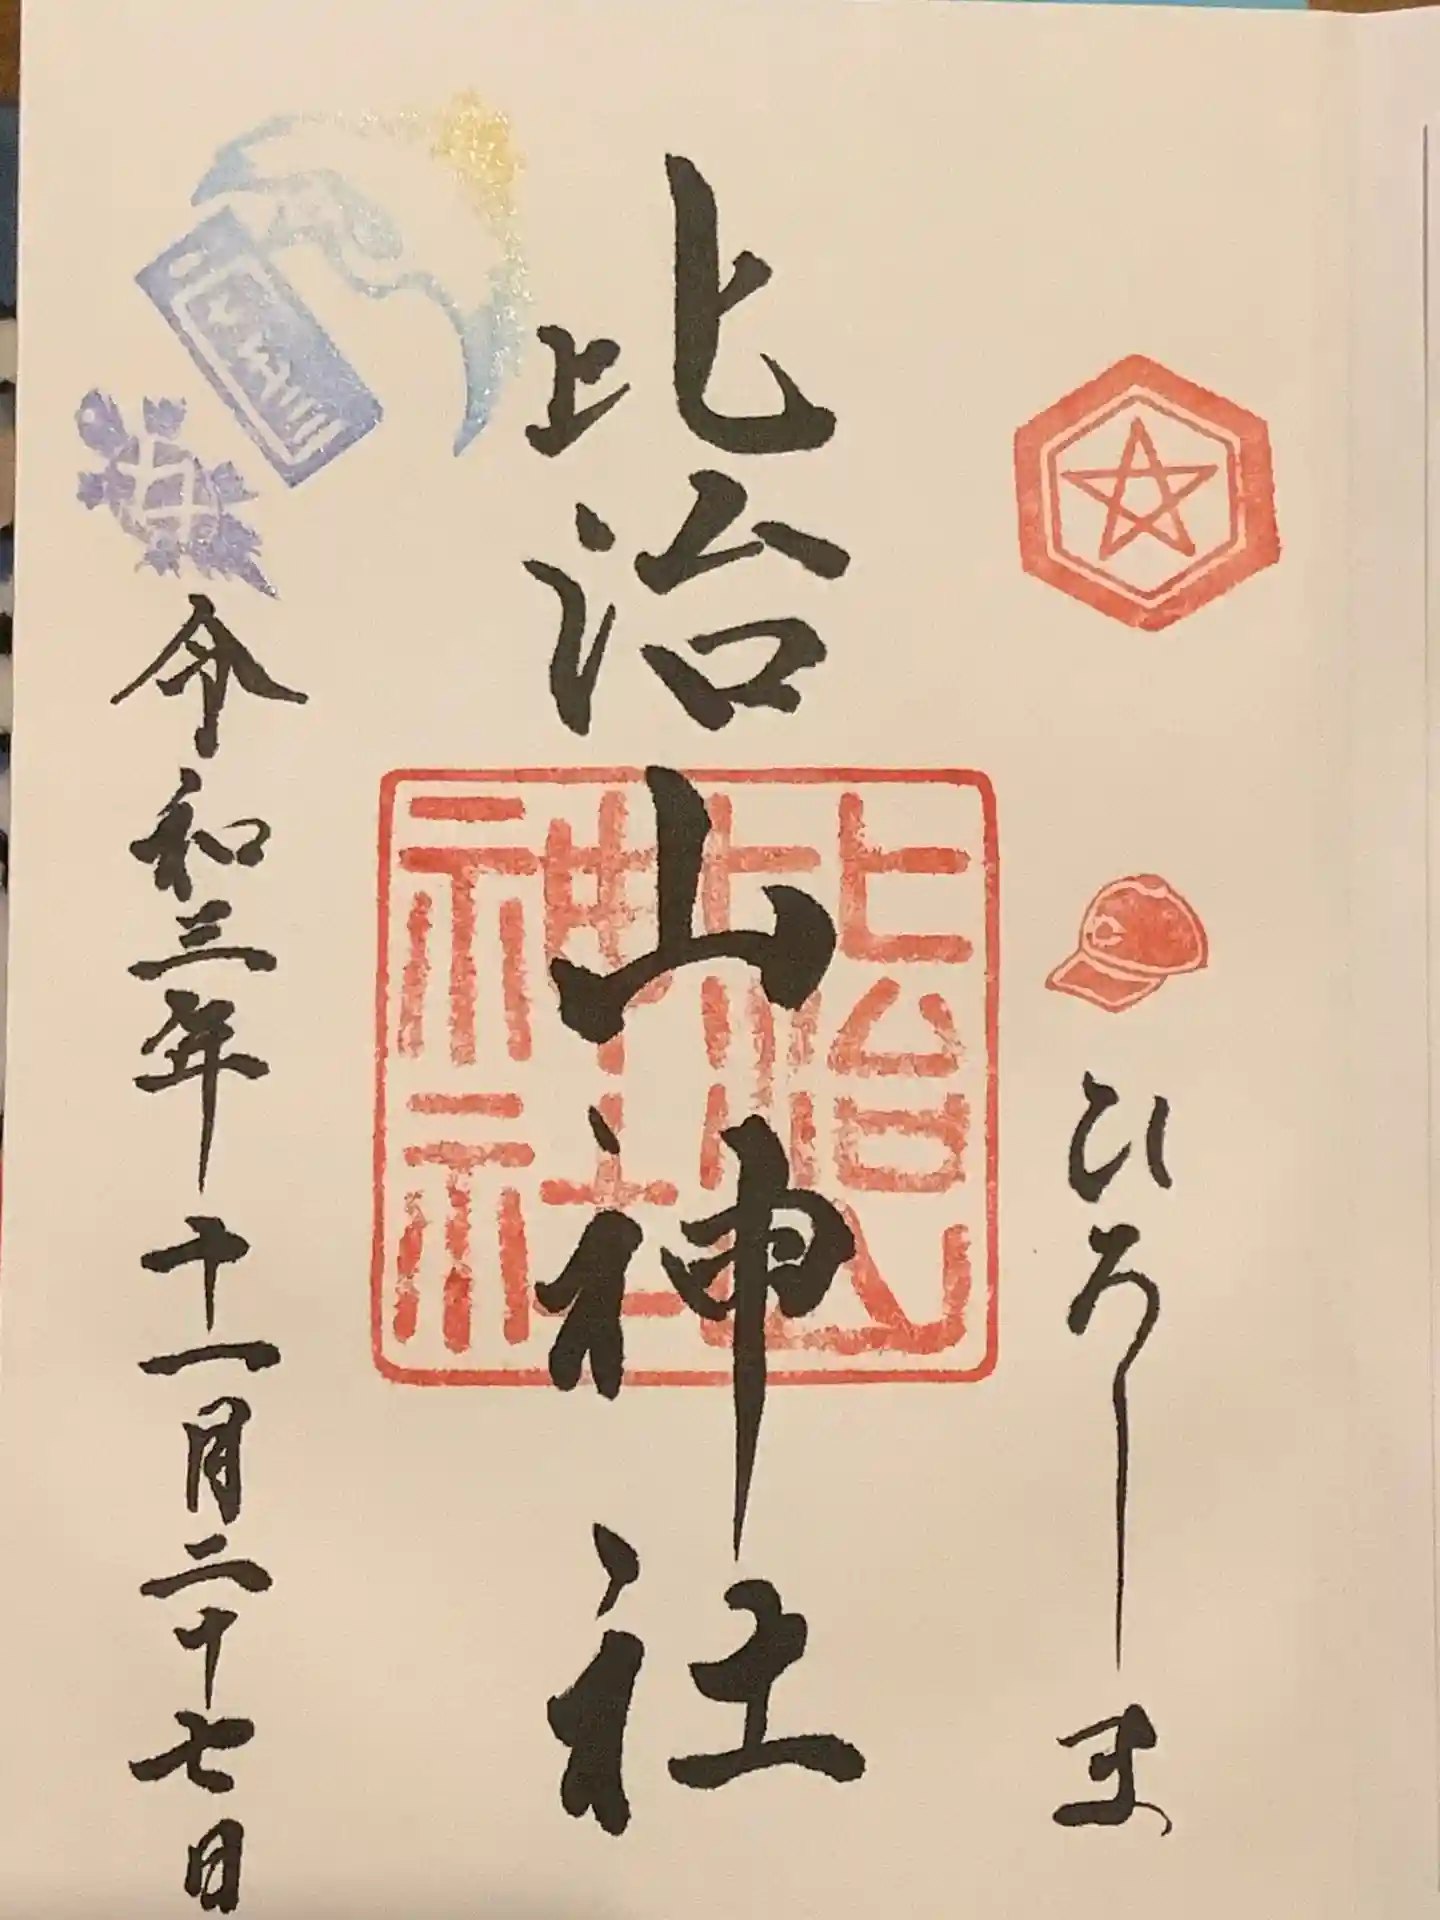 ひろしま
比治山神社
比治山神社
令和三年十一月二十七日